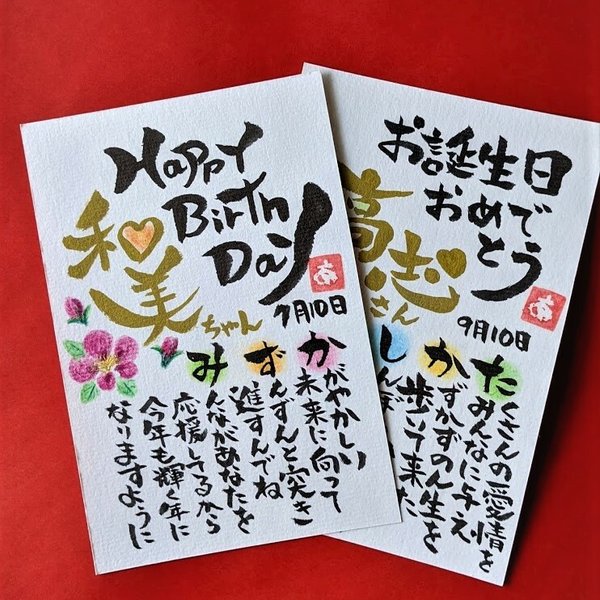 Happy
Birth
Day
和美
ちゃん
あ
9月10日
かがやかしい
未来に向って
ずんずんと突き
進すんでね
みんながあなたを
応援してるから
今年も輝く年に
なりますように
お誕生日
おめで
とう
高志
さん
あ
9月10日
たくさんの愛情を
みんなに与え
かずかずの人生を
歩いて来た
しんぼ